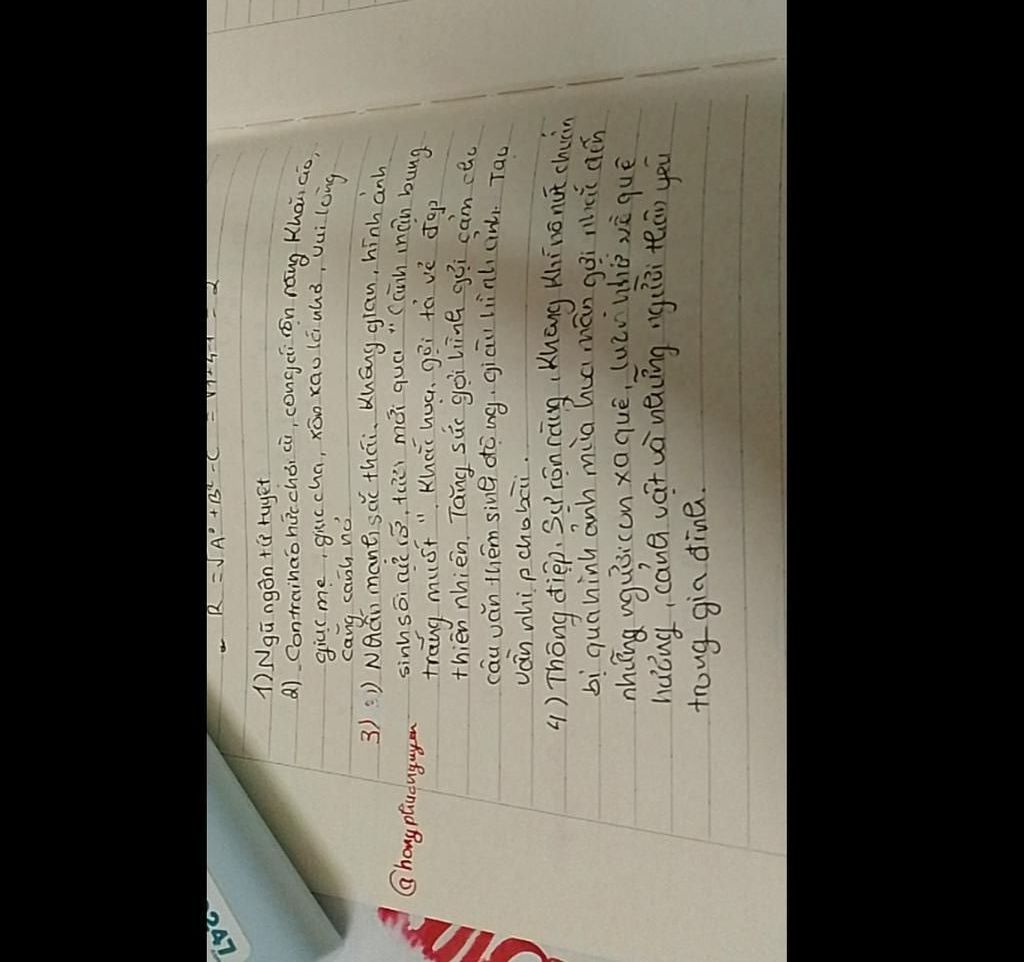 R = √A² + B² - C =
1) Ngũ ngôn tứ tuyệt
2) - Con trai háo hức chơi cù, con gái rộn ràng khăn áo,
giục mẹ, giục cha, xôn xao lối nhỏ, vui lòng
căng cành nỏ
3) Nhấn mạnh sắc thái, không gian, hình ảnh
sinh sôi nảy nở, tươi mới qua "Cành mận bung
trắng muốt". Khắc họa, gợi tả vẻ đẹp
thiên nhiên. Tăng sức gợi hình gợi cảm cho
câu văn thêm sinh động, giàu hình ảnh. Tạo
vần nhịp cho bài.
4) Thông điệp. Sự rộn ràng, không khí nô nức chuẩn
bị qua hình ảnh mùa hoa mận gợi nhắc đến
những người con xa quê, luôn nhớ về quê
hương, cảnh vật và những người thân yêu
trong gia đình.
@hongphucnguyen
247